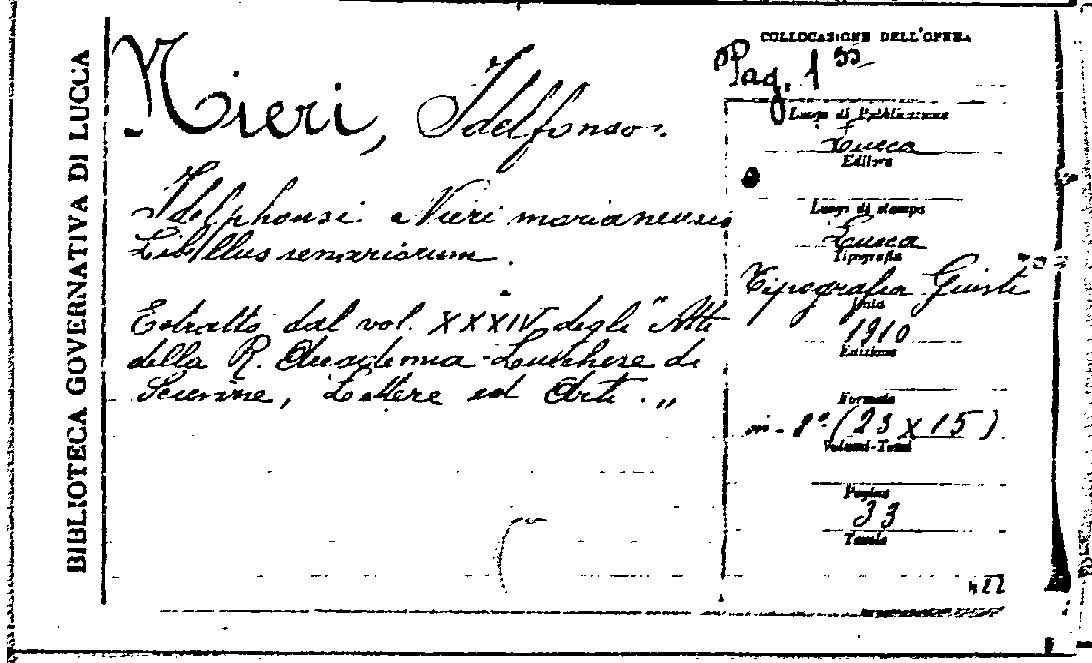 BIBLIOTECA GOVERNATIVA DI LUCCA
Nieri, Idelfonso.
Idelphonsi Nieri marianensis
Libellus senariorum.
Estratto dal vol. XXXIV degli "Atti
della R. Accademia Lucchese di
Scienze, Lettere ed Arti."
COLLOCAZIONE DELL'OPERA
Pag. 1
Luogo di Pubblicazione
Lucca
Editore
Luogo di stampa
Lucca
Tipografia
Tipografia Giusti
Data
1910
Edizione
Formato
in-8° (23 x 15)
Volumi-Tomi
Pagine
33
Tavole
422